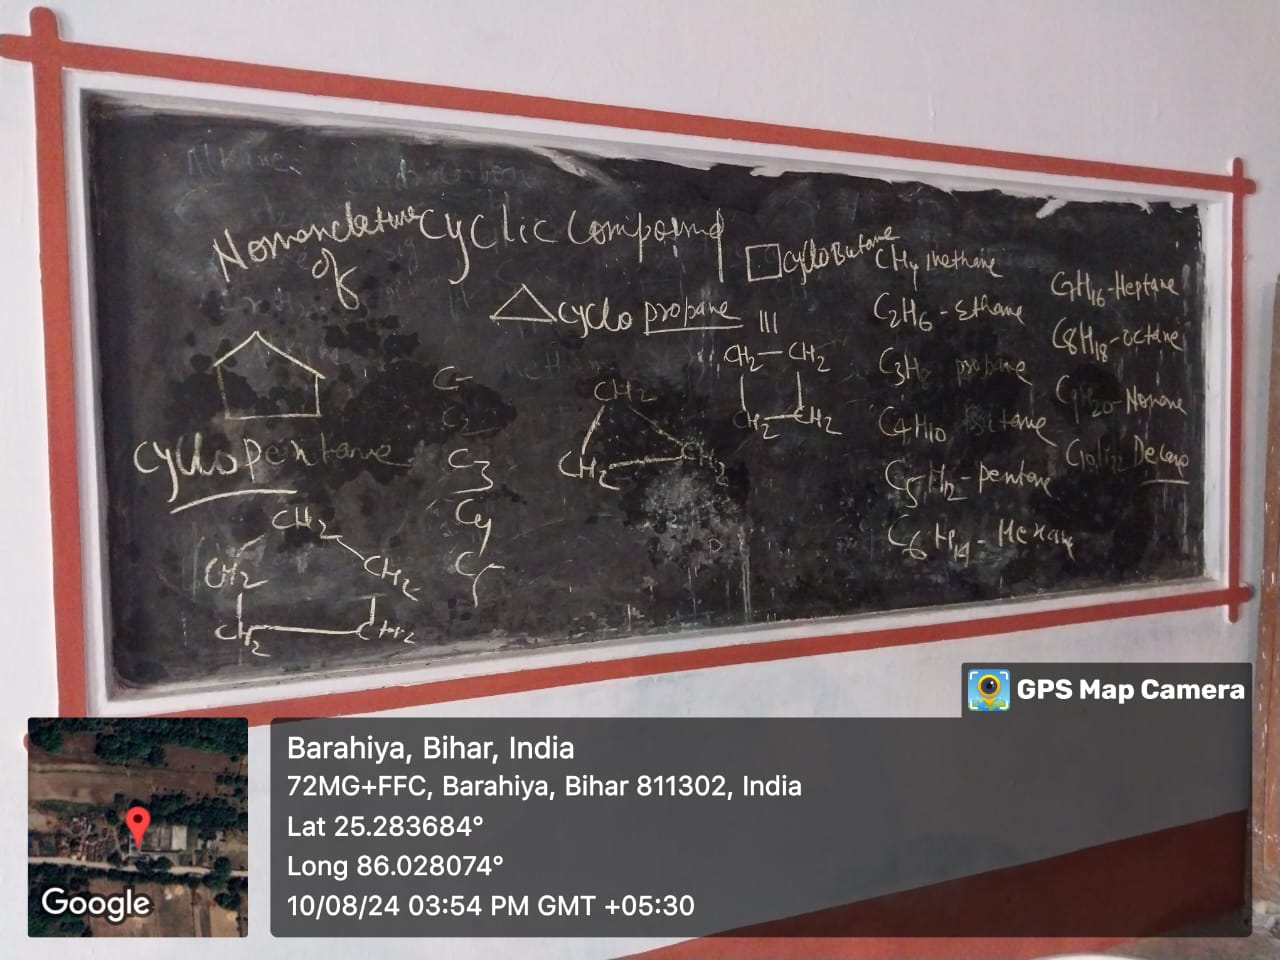 Alkane
Nomenclature Cyclic Compound
of
□ cyclo Butane
△ cyclo propane
|||
CH2—CH2
CH2—CH2
CH2
CH2 CH2
cyclopentane
CH2
CH2 CH2
CH2 CH2
C2
C3
C4
C5
CH4 methane
C2H6 - Ethane
C3H8 propane
C4H10 Butane
C5H12 - pentane
C6H14 - Hexane
C7H16 - Heptane
C8H18 - octane
C9H20 - Nonane
C10H22 Decane
GPS Map Camera
Barahiya, Bihar, India
72MG+FFC, Barahiya, Bihar 811302, India
Lat 25.283684°
Long 86.028074°
10/08/24 03:54 PM GMT +05:30
Google